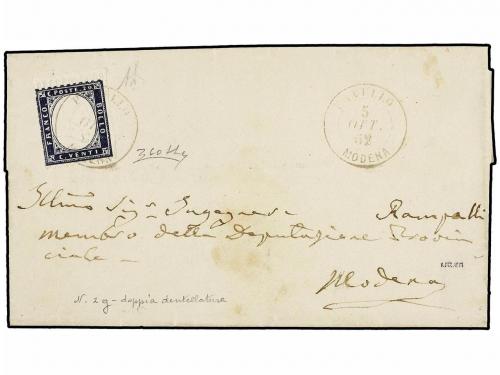 C. POSTE 20
FRANCO
BOLLO
C. VENTI
5
OTT.
62
MODENA
Illmo Sigr Ingegnere Rampalli
membro della Deputazione Provin
ciale
Modena
N. 2 g - doppia dentellatura